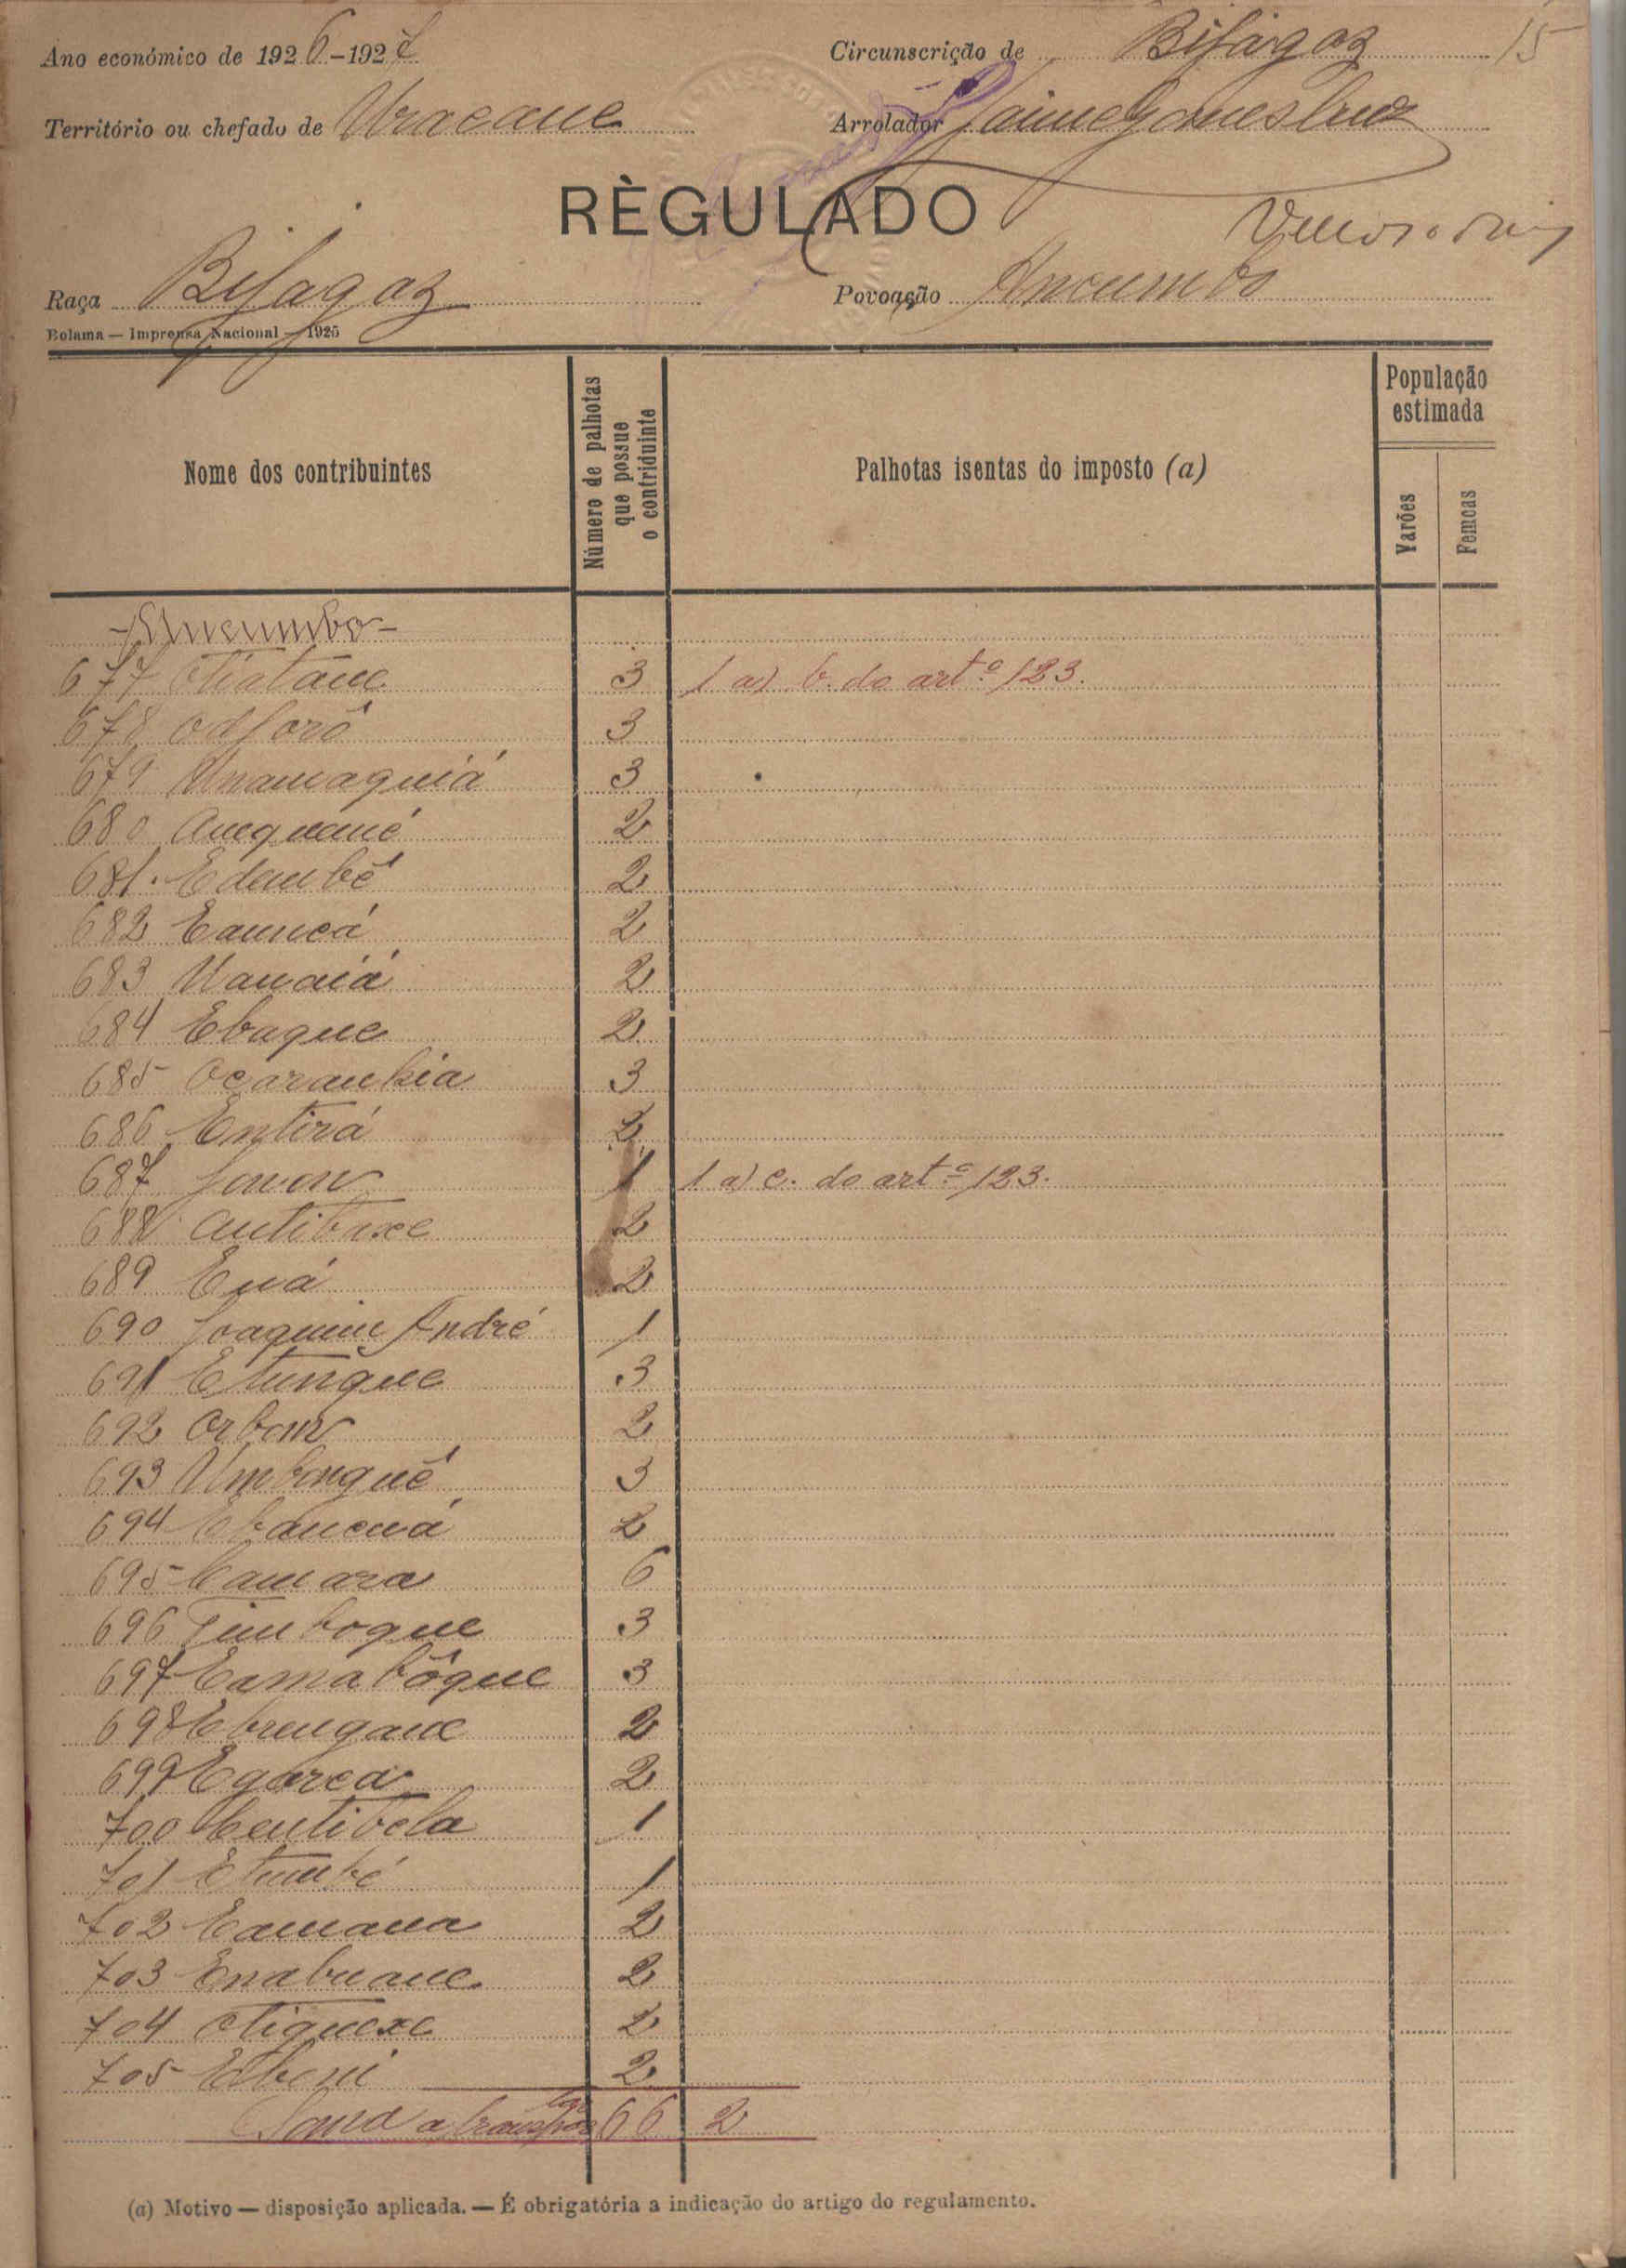 Ano económico de 1926-1927
Circunscrição de Bijagoz 15
Território ou chefado de Uracane
Arrolador Jaime Gomes Cruz
RÈGULADO
Raça Bijagoz
Povoação Ancumbo
Bolama — Imprensa Nacional — 1925
Nome dos contribuintes
Número de palhotas que possue o contriduinte
Palhotas isentas do imposto (a)
População estimada
Varões
Femeas
- Ancumbo -
677 Etiatane 3 1 a) b. do artº 123.
678 Odjorô 3
679 Unamaquiá 3
680 Amequané 2
681. Edambê 2
682 Camucá 2
683 Uanaiá 2
684 Ebaque 2
685 Ocarankia 3
686 Entirá 2
687 1 1 a) c. do artº 123.
688 Antibaxe 2
689 Euá 2
690 Joaquim André 1
691 Etungue 3
692 Orbom 2
693 Umbonguê 3
694 2
695 Camara 6
696 Timboque 3
697 Camabôque 3
698 Ebrengane 2
699 Egorca 2
700 Centibela 1
701 Etumbé 1
702 Camana 2
703 Enabuane 2
704 Etiquexe 2
705 2
Soma a transportar 66 2
(a) Motivo — disposição aplicada. — É obrigatória a indicação do artigo do regulamento.